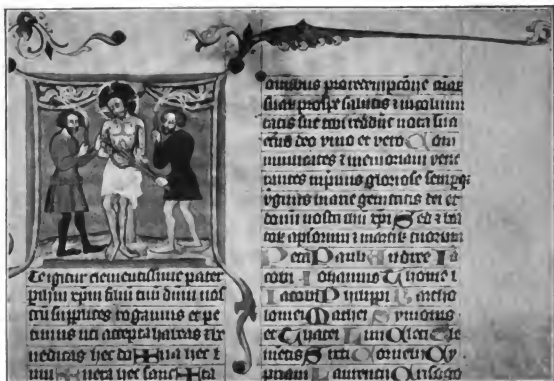 Te igitur clementissime pater
p ihm xpm filiu tuu dnm nos
tru supplices rogamus et pe
timus uti accepta habeas et be
nedicas hec do✠na hec
mu✠nera hec sanc✠ta
omnibus pro redempcone aiar
suar pro spe salutis et incolumi
tatis sue tibi reddut vota sua
deo vivo et vero Com
municates et memoriam vene
rantes inprimis gloriose sempq
v'ginis marie genitricis dei et
domi nostri xpi Sed et bea
tor aplorum martir tuorum
Petri Pauli Andree Ia
cobi Iohannis Thome
Iacobi Philippi Bartho
lomei Mathei Symonis
et Thatei Lini Cleti Cle
metis Sixti Cornelii Cy
priani Laurentii Crisogo